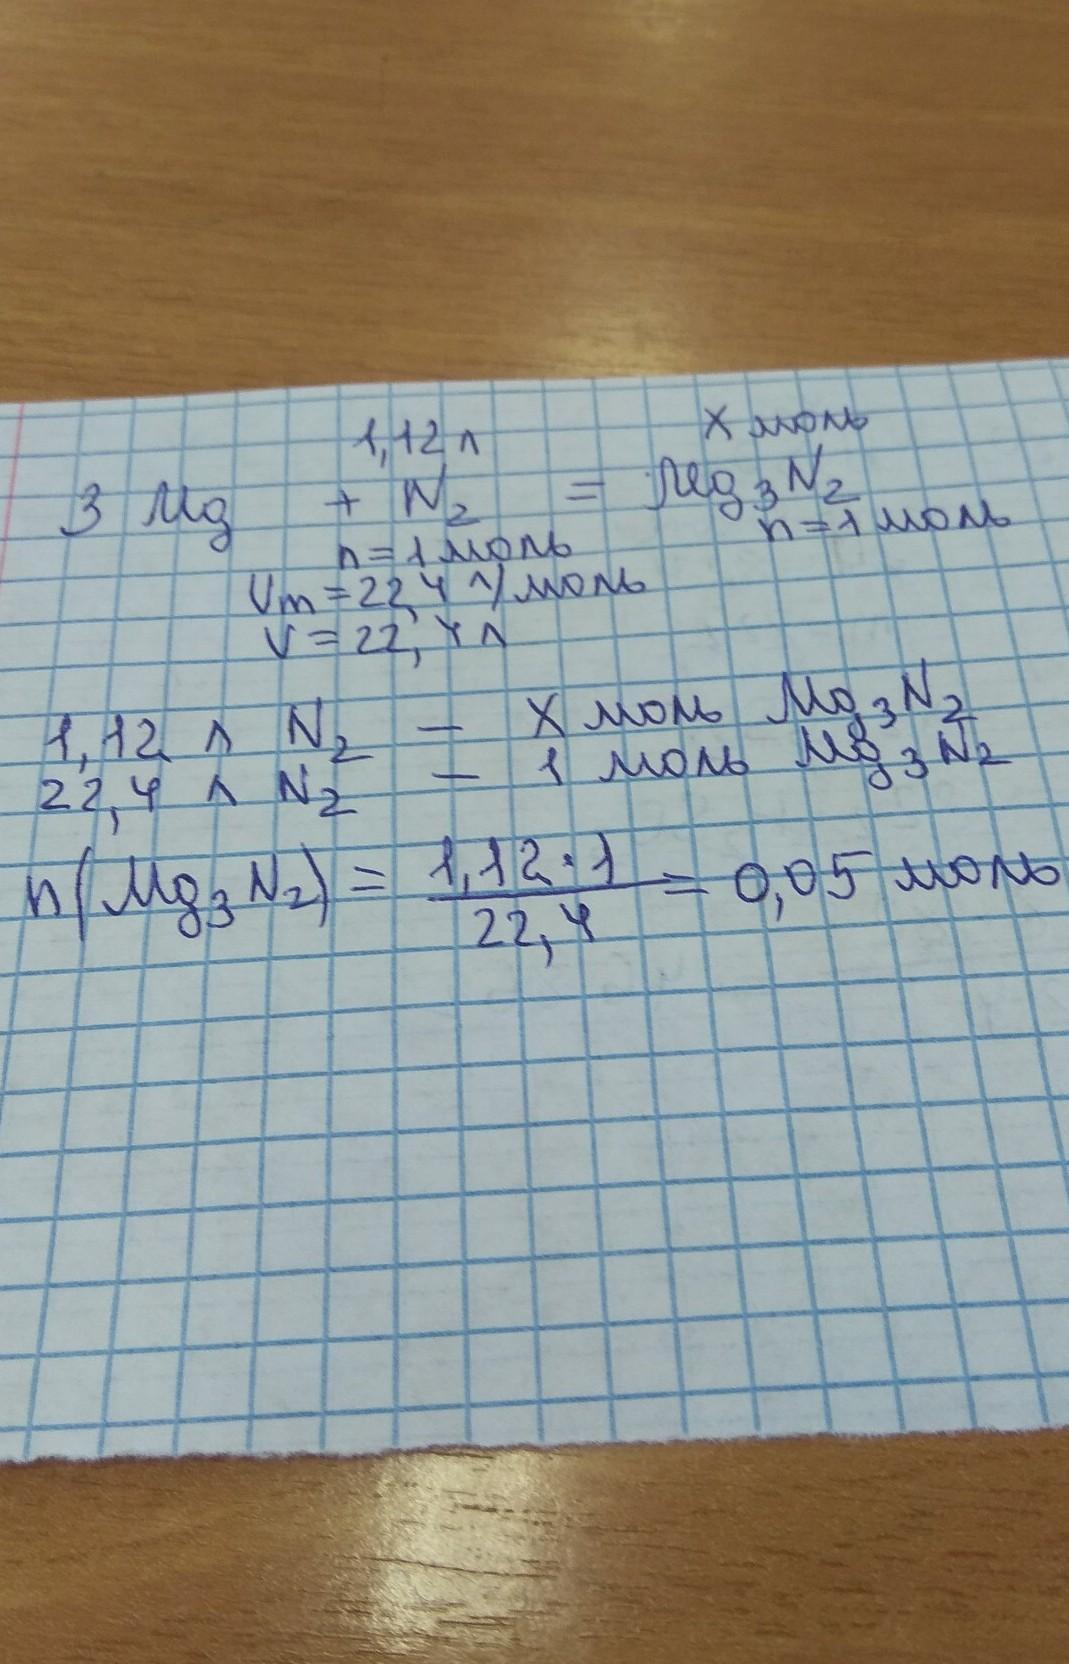 1,12 л x моль
3 Mg + N₂ = Mg₃N₂
n=1 моль n=1 моль
Vm=22,4 л/моль
V=22,4 л
1,12 л N₂ – x моль Mg₃N₂
22,4 л N₂ – 1 моль Mg₃N₂
n(Mg₃N₂) = 1,12·1/22,4 = 0,05 моль